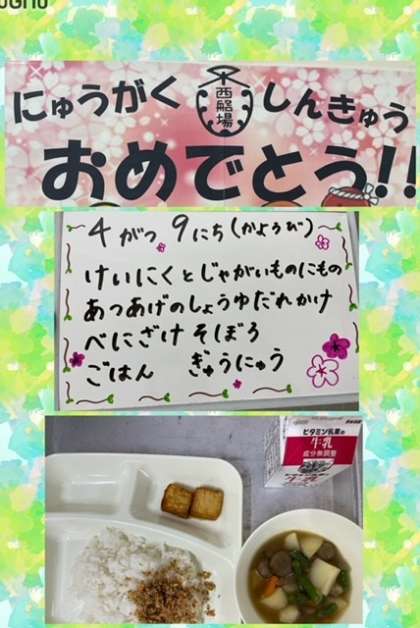 にゅうがく しんきゅう
西船場
おめでとう!!
4がつ 9にち(かようび)
けいにくとじゃがいものにもの
あつあげのしょうゆだれかけ
べにざけそぼろ
ごはん ぎゅうにゅう
牛乳
成分無調整